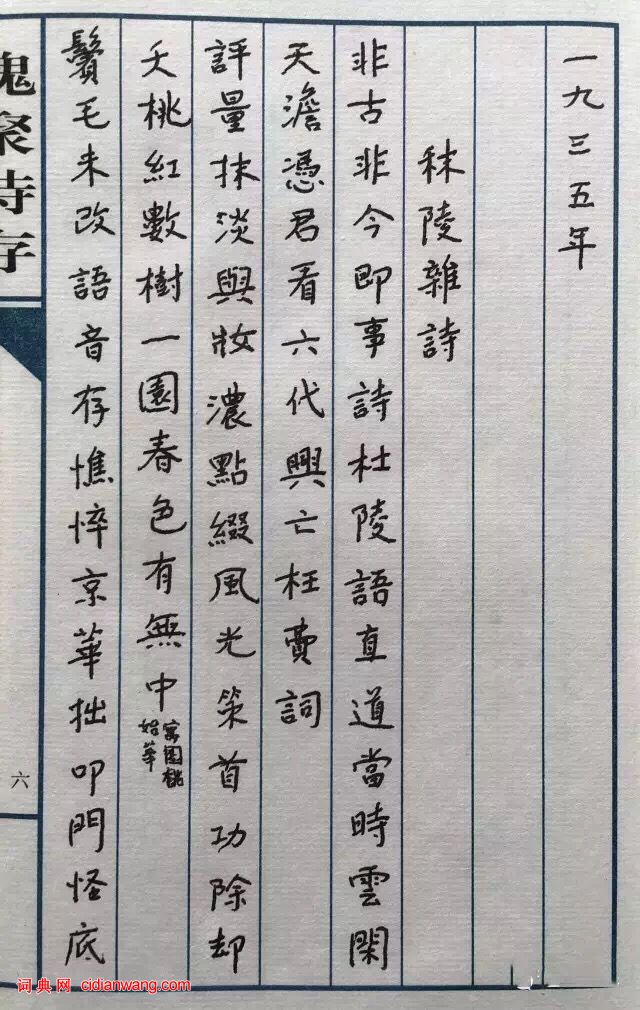 一九三五年
秣陵雜詩
非古非今即事詩杜陵語直道當時雲閑
天澹憑君看六代興亡枉費詞
評量抹淡與妝濃點綴風光策首功除却
夭桃紅數樹一園春色有無中
寓園桃
始華
鬢毛未改語音存憔悴京華拙叩門怪底
愧聚詩存
六
词典网 cidianwang.com